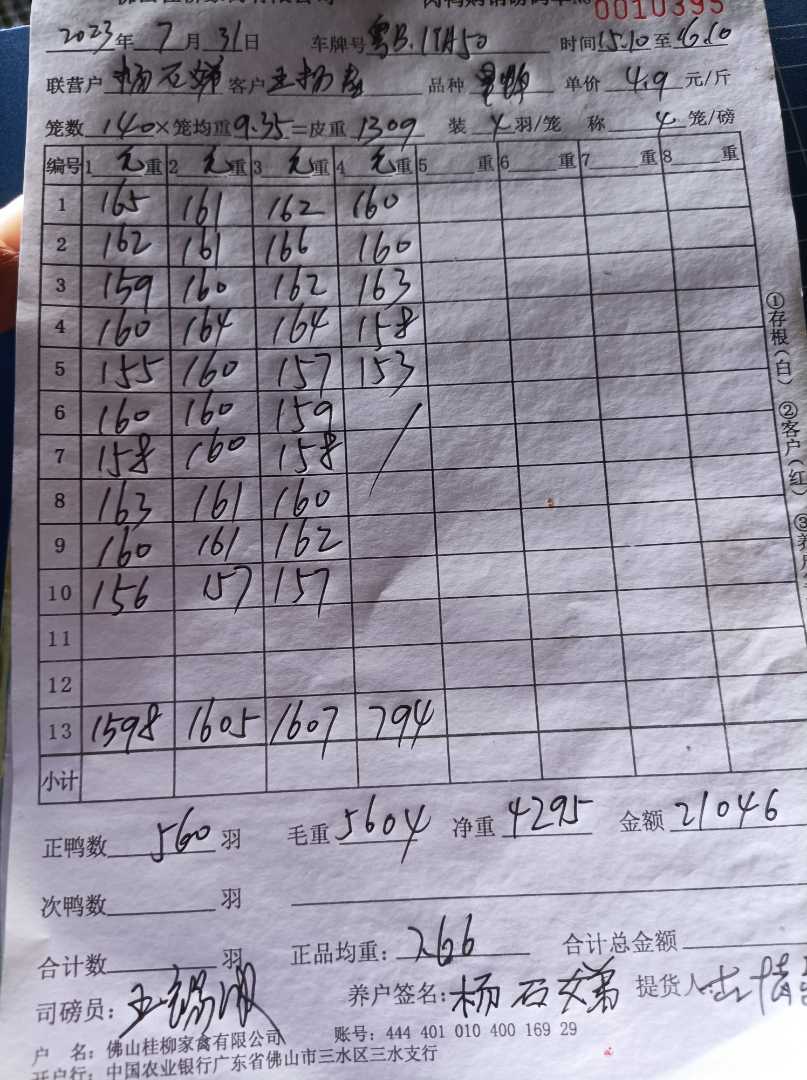 0010395
2023年7月31日 车牌号 粤B.11A50 时间15.10至16.10
联营户 杨石娣 客户 品种 单价 4.9 元/斤
笼数 140×笼均重9.35=皮重 1309 装 4 羽/笼 称 4 笼/磅
编号 1 元 重 2 元 重 3 元 重 4 元 重 5 重 6 重 7 重 8 重
1 165 161 162 160
2 162 161 166 160
3 159 160 162 163
4 160 164 164 158
5 155 160 157 153
6 160 160 159
7 158 160 158
8 163 161 160
9 160 161 162
10 156 157 157
11
12
13 1598 1605 1607 794
小计
①存根(白) ②客户(红) ③养
正鸭数 560 羽 毛重 5604 净重 4295 金额 21046
次鸭数 羽
合计数 羽 正品均重: 766 合计总金额
司磅员: 养户签名: 杨石娣 提货人:
户 名: 佛山桂柳家禽有限公司 账号: 444 401 010 400 169 29
开户行: 中国农业银行广东省佛山市三水区三水支行